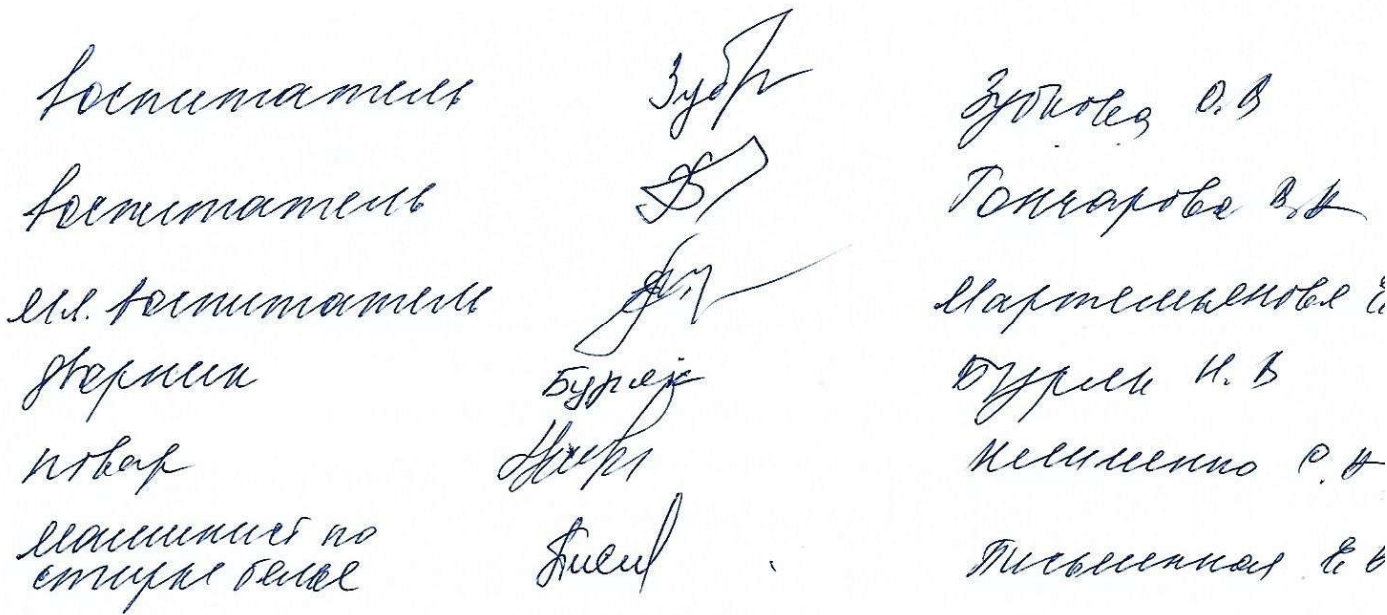 воспитатель Зубкова О.В
воспитатель Гончарова В.Н
мл. воспитатель Мартемьянова Е
дворник Буряк Буряк Н.В
повар
машинист по
стирке белья Письменная Е В